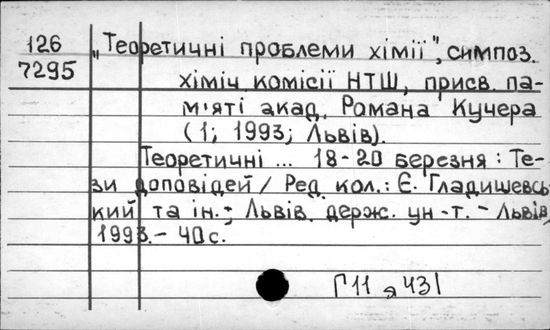 126
7295
„Теоретичні проблеми хімії", симпоз.
хіміч комісії НТШ, присв. па-
м'яті акад. Романа Кучера
(1; 1993; Львів).
Теоретичні ... 18-20 березня: Те-
зи доповідей / Ред. кол.: Є. Гладишевсь-
кий та ін.; Львів. держ. ун-т. - Львів,
1993. - 40с.
Г11 я431